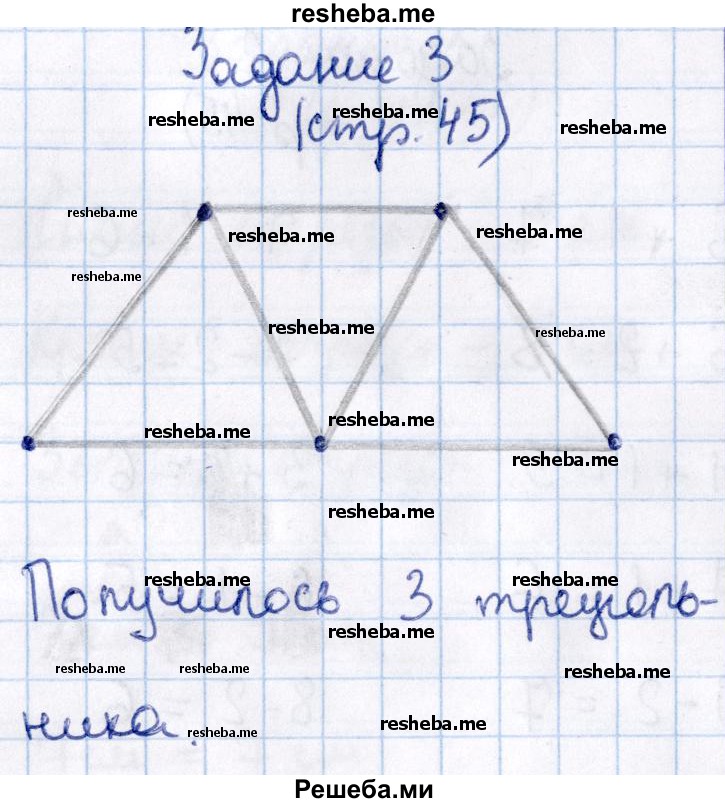 resheba.me
Задание 3
resheba.me resheba.me resheba.me
(стр. 45)
resheba.me resheba.me resheba.me
resheba.me
resheba.me resheba.me
resheba.me resheba.me
resheba.me
resheba.me
resheba.me resheba.me
Получилось 3 треуголь-
resheba.me
resheba.me resheba.me resheba.me
ника.
resheba.me resheba.me
Решеба.ми